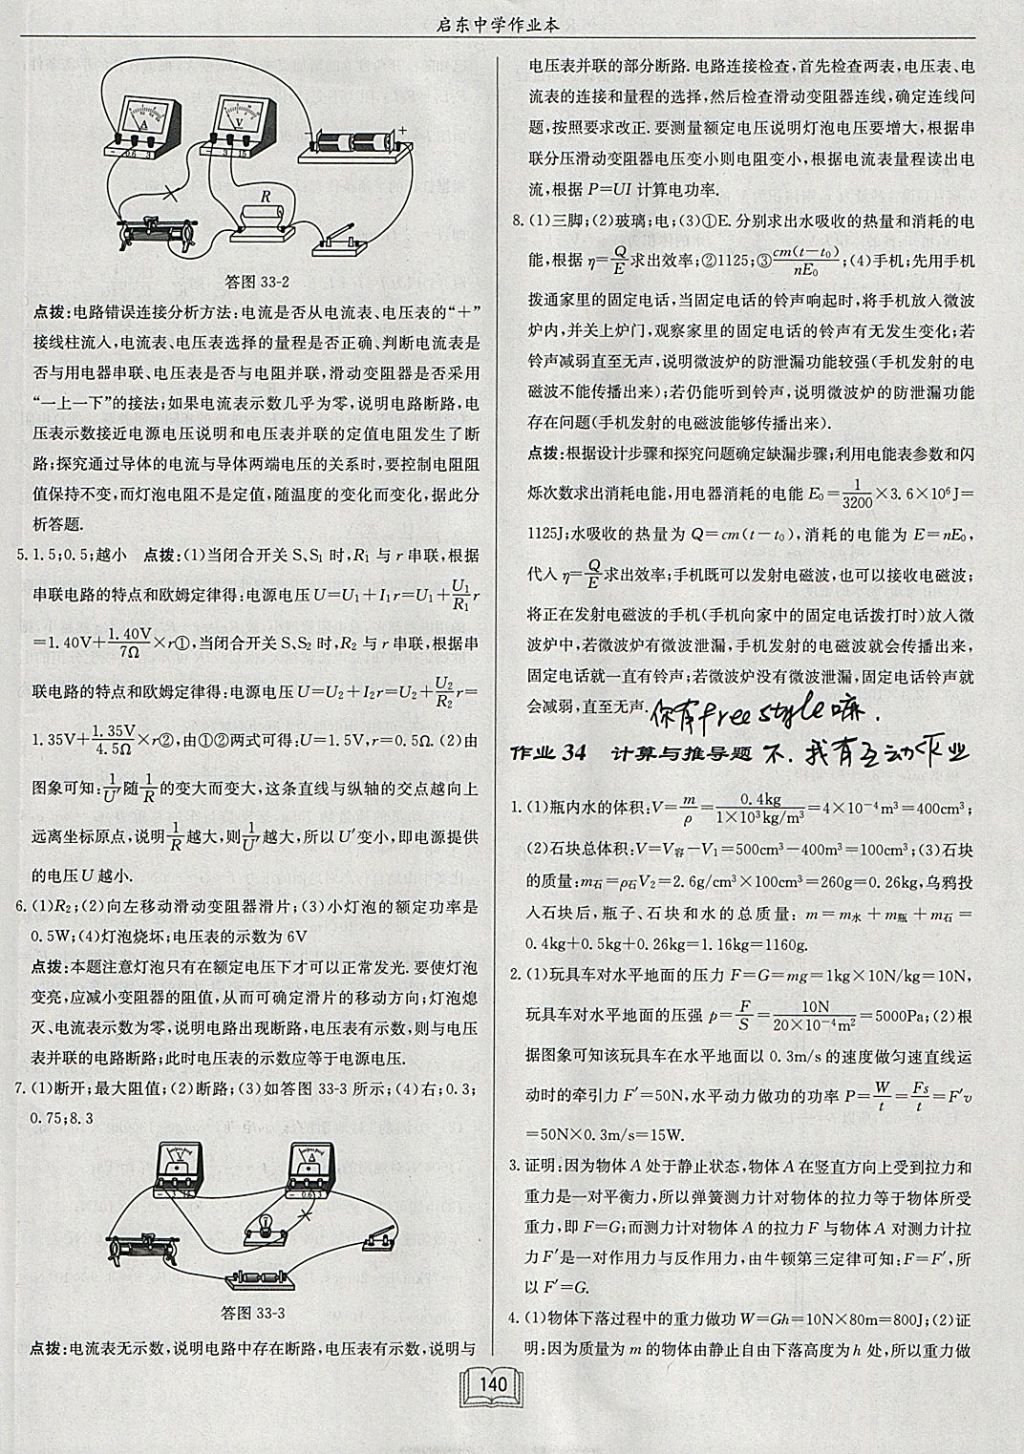 启东中学作业本
A
- 0.6 3
V
- 3 15
- +
R
答图 33-2
点拨:电路错误连接分析方法:电流是否从电流表、电压表的“+”
接线柱流入,电流表、电压表选择的量程是否正确、判断电流表是
否与用电器串联、电压表是否与电阻并联,滑动变阻器是否采用
“一上一下”的接法;如果电流表示数几乎为零,说明电路断路,电
压表示数接近电源电压说明和电压表并联的定值电阻发生了断
路;探究通过导体的电流与导体两端电压的关系时,要控制电阻阻
值保持不变,而灯泡电阻不是定值,随温度的变化而变化,据此分
析答题.
5. 1.5;0.5;越小 点拨:(1)当闭合开关 S、S₁ 时,R₁ 与 r 串联,根据
串联电路的特点和欧姆定律得:电源电压 U=U₁+I₁r=U₁+U₁/R₁ r
=1.40V+1.40V/7Ω×r①,当闭合开关 S、S₂ 时,R₂ 与 r 串联,根据串
联电路的特点和欧姆定律得:电源电压 U=U₂+I₂r=U₂+U₂/R₂ r=
1.35V+1.35V/4.5Ω×r②,由①②两式可得:U=1.5V,r=0.5Ω.(2)由
图象可知:1/U′随1/R的变大而变大,这条直线与纵轴的交点越向上
远离坐标原点,说明1/R越大,则1/U′越大,所以 U′变小,即电源提供
的电压 U 越小.
6. (1)R₂;(2)向左移动滑动变阻器滑片;(3)小灯泡的额定功率是
0.5W;(4)灯泡烧坏;电压表的示数为 6V
点拨:本题注意灯泡只有在额定电压下才可以正常发光.要使灯泡
变亮,应减小变阻器的阻值,从而可确定滑片的移动方向;灯泡熄
灭、电流表示数为零,说明电路出现断路,电压表有示数,则与电压
表并联的电路断路;此时电压表的示数应等于电源电压.
7. (1)断开;最大阻值;(2)断路;(3)如答图 33-3 所示;(4)右;0.3;
0.75;8.3
V
- 3 15
A
- 0.6 3
答图 33-3
点拨:电流表无示数,说明电路中存在断路,电压表有示数,说明与
电压表并联的部分断路.电路连接检查,首先检查两表,电压表、电
流表的连接和量程的选择,然后检查滑动变阻器连线,确定连线问
题,按照要求改正.要测量额定电压说明灯泡电压要增大,根据串
联分压滑动变阻器电压变小则电阻变小,根据电流表量程读出电
流,根据 P=UI 计算电功率.
8. (1)三脚;(2)玻璃;电;(3)①E.分别求出水吸收的热量和消耗的电
能,根据 η=Q/E求出效率;②1125;③cm(t-t₀)/nE₀;(4)手机;先用手机
拨通家里的固定电话,当固定电话的铃声响起时,将手机放入微波
炉内,并关上炉门,观察家里的固定电话的铃声有无发生变化;若
铃声减弱直至无声,说明微波炉的防泄漏功能较强(手机发射的电
磁波不能传播出来);若仍能听到铃声,说明微波炉的防泄漏功能
存在问题(手机发射的电磁波能够传播出来).
点拨:根据设计步骤和探究问题确定缺漏步骤;利用电能表参数和闪
烁次数求出消耗电能,用电器消耗的电能 E₀=1/3200×3.6×10⁶J=
1125J;水吸收的热量为 Q=cm(t-t₀),消耗的电能为 E=nE₀,
代入 η=Q/E求出效率;手机既可以发射电磁波,也可以接收电磁波;
将正在发射电磁波的手机(手机向家中的固定电话拨打时)放入微
波炉中,若微波炉有微波泄漏,手机发射的电磁波就会传播出来,
固定电话就一直有铃声;若微波炉没有微波泄漏,固定电话铃声就
会减弱,直至无声. 你有freestyle嘛.
作业 34 计算与推导题 不.我有互动作业
1. (1)瓶内水的体积:V=m/ρ=0.4kg/1×10³kg/m³=4×10⁻⁴m³=400cm³;
(2)石块总体积:V=V容-V₁=500cm³-400m³=100cm³;(3)石块
的质量:m石=ρ石V₂=2.6g/cm³×100cm³=260g=0.26kg,乌鸦投
入石块后,瓶子、石块和水的总质量: m=m水+m瓶+m石=
0.4kg+0.5kg+0.26kg=1.16kg=1160g.
2. (1)玩具车对水平地面的压力 F=G=mg=1kg×10N/kg=10N,
玩具车对水平地面的压强 p=F/S=10N/20×10⁻⁴m²=5000Pa;(2)根
据图象可知该玩具车在水平地面以 0.3m/s 的速度做匀速直线运
动时的牵引力 F′=50N,水平动力做功的功率 P=W/t=Fs/t=F′v
=50N×0.3m/s=15W.
3. 证明:因为物体 A 处于静止状态,物体 A 在竖直方向上受到拉力和
重力是一对平衡力,所以弹簧测力计对物体的拉力等于物体所受
重力,即 F=G;而测力计对物体 A 的拉力 F 与物体 A 对测力计拉
力 F′是一对作用力与反作用力,由牛顿第三定律可知:F=F′,所
以 F′=G.
4. (1)物体下落过程中的重力做功 W=Gh=10N×80m=800J;(2)证
明:因为质量为 m 的物体由静止自由下落高度为 h 处,所以重力做
140